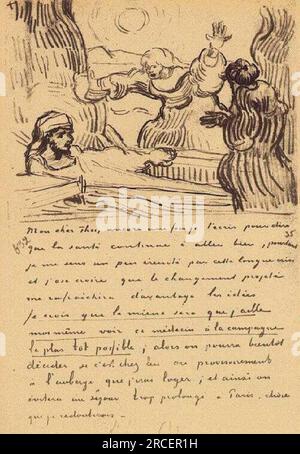 Mon cher Theo, encore une fois je t'écris pour dire
que la santé continue à aller bien, pourtant
je me sens un peu éreinté par cette longue crise
et j'ose croire que le changement projeté
me rafraichira davantage les idées
je crois que le mieux sera que j'aille
moi même voir ce médecin à la campagne
le plus tôt possible; alors on pourra bientôt
décider si c'est chez lui ou provisoirement
à l'auberge que j'irai loger; et ainsi on
évitera un séjour trop prolongé à Paris, chose
que je redouterais.